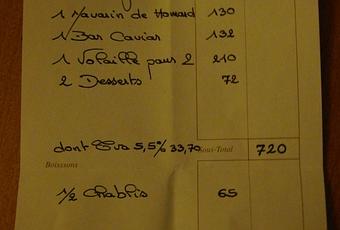 1 Navarin de Homard 130
1 Bar Caviar 132
1 Volaille pour 2 210
2 Desserts 72
dont Tva 5,5% 33,70 Sous-Total 720
Boissons
1/2 Chablis 65